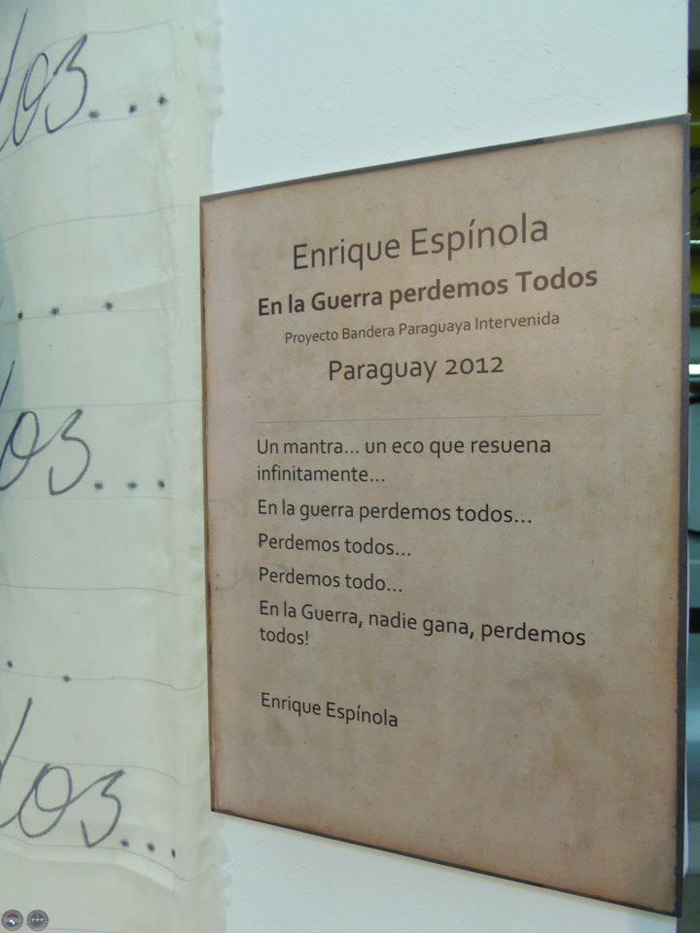 Enrique Espínola
En la Guerra perdemos Todos
Proyecto Bandera Paraguaya Intervenida
Paraguay 2012
Un mantra... un eco que resuena
infinitamente...
En la guerra perdemos todos...
Perdemos todos...
Perdemos todo...
En la Guerra, nadie gana, perdemos
todos!
Enrique Espínola